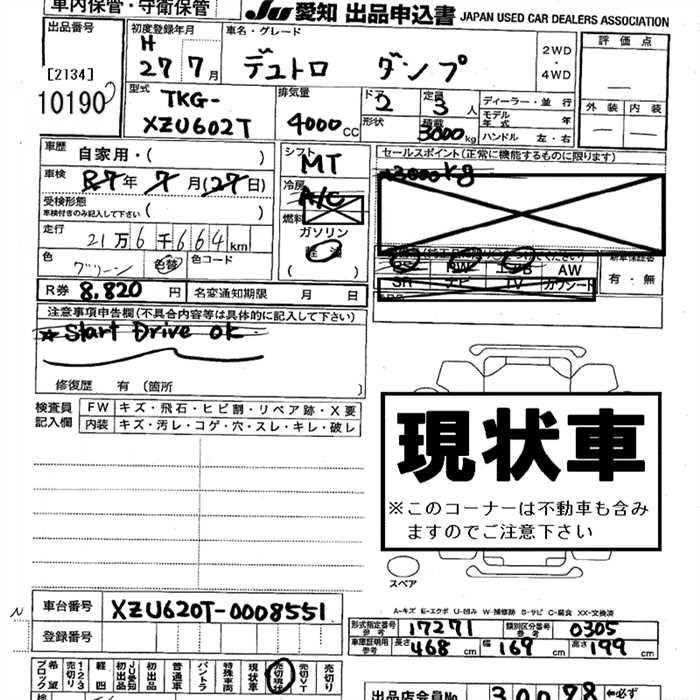 車内保管・守衛保管
JU 愛知 出品申込書 JAPAN USED CAR DEALERS ASSOCIATION
出品番号
[2134]
10190
初度登録年月
H
27 7月
車名・グレード
デュトロ ダンプ
2WD
・
4WD
評価点
外装 内装
型式
TKG-
XZU602T
排気量
4000cc
ドア
2
形状
定員
3人
積載
3000kg
ディーラー・並行
モデル
年式 年
ハンドル 左・右
車歴
自家用・( )
車検
R7年 7月(27日)
受検形態
車検付きのみ記入して下さい ( )
走行
21万6千664km
色
グリーン
色替
色コード
シフト
MT
冷房
A/C
燃料
ガソリン
軽油
( )
セールスポイント(正常に機能するものに限ります)
3000kg
AW
SR ナビ TV カワシート
新車保証書
有・無
R券 8,820円 名変通知期限 月 日
注意事項申告欄(不具合内容等は具体的に記入して下さい)
☆ Start Drive OK
修復歴 有(箇所 )
検査員
記入欄
FW キズ・飛石・ヒビ割・リペア跡・X要
内装 キズ・汚レ・コゲ・穴・スレ・キレ・破レ
現状車
※このコーナーは不動車も含み
ますのでご注意下さい
スペア
A-キズ E-エクボ U-凹み W-補修跡 S-サビ C-腐食 XX-交換済
N
車台番号 XZU620T-0008551
登録番号
形式指定番号
参考
17271
類別区分番号
参考
0305
車庫証明用
参考
長さ 468cm 幅 169cm 高さ 199cm
希望ブロック
123売切り
軽四
JU愛知初出品
初出品
普通車
バントラ
特殊車両
現状車
売切現状
売切VT
売切り
出品店会員No
←必ず